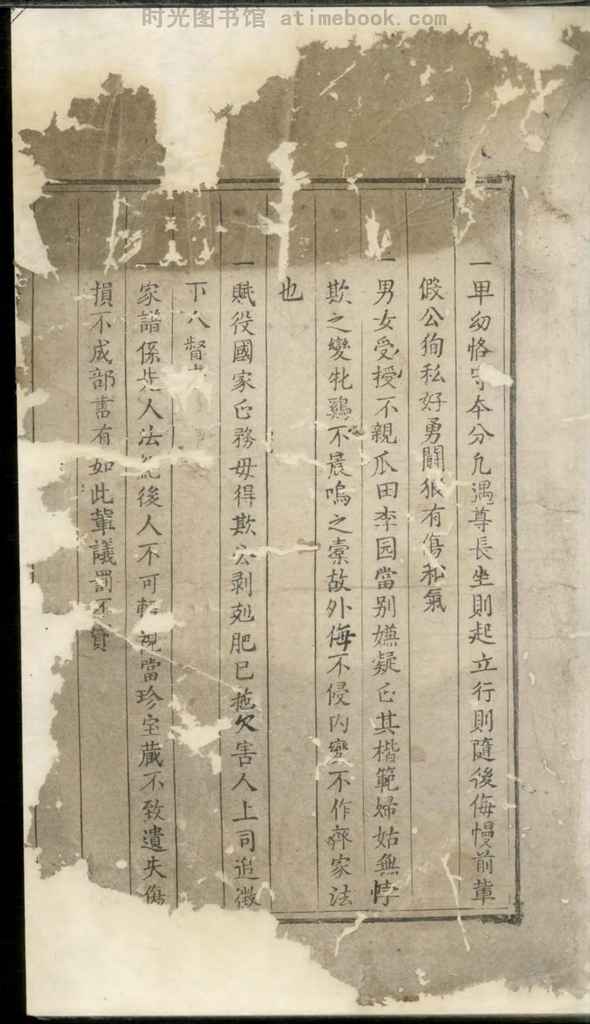 时光图书馆 atimebook.com
一卑幼恪守本分凢遇尊長坐則起立行則隨後侮慢前輩
假公狥私好勇鬪狠有傷和氣
一男女受授不親瓜田李园當别嫌疑正其楷範婦姑無悖
欺之變牝鷄不晨鳴之索故外侮不侵内變不作齊家法
也
一賦役國家正務毋得欺公剥剋肥己拖欠害人上司追徵
下人督
一家譜係先人法 後人不可輕視當珍宝藏不致遺失傷
損不成部書有如此輩議罰不貸